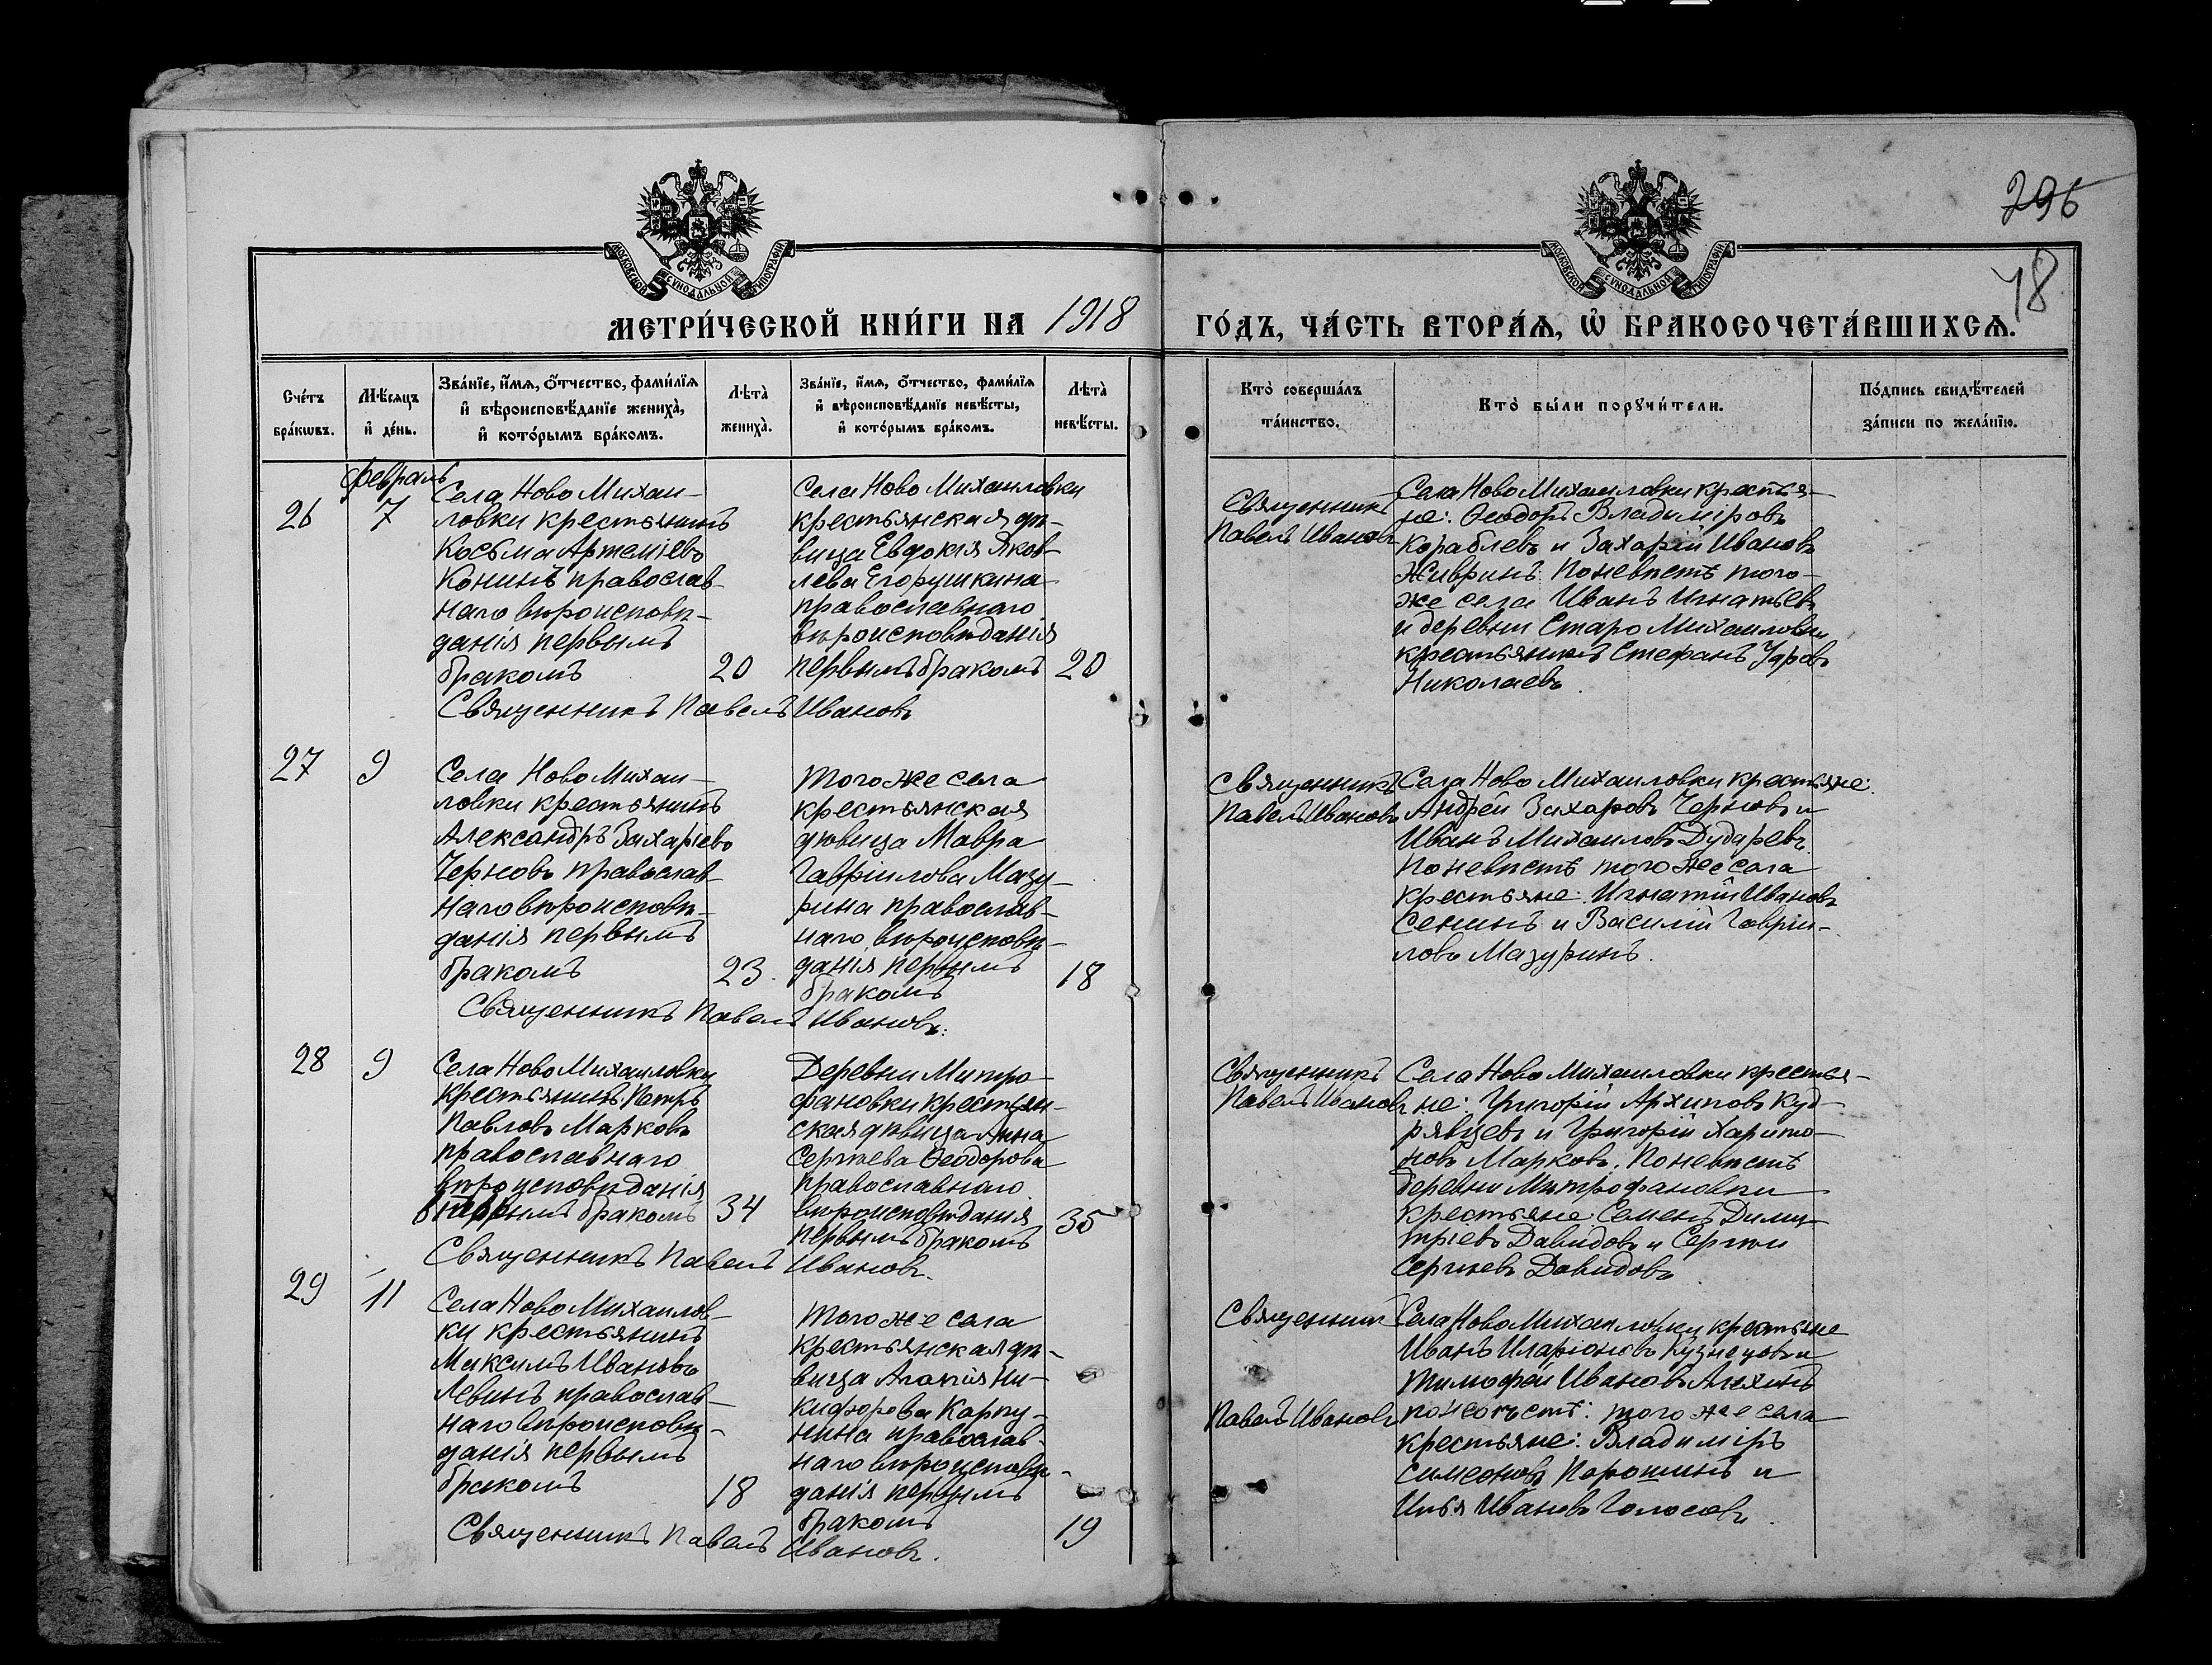 296
48
МОСКОВСКОЙ СѴНОДАЛЬНОЙ ТИПОГРАФІИ
МОСКОВСКОЙ СѴНОДАЛЬНОЙ ТИПОГРАФІИ
МЕТРИ́ЧЕСКОЙ КНИ́ГИ НА 1918 ГО́ДЪ, ЧА́СТЬ ВТОРА́Я, Ѿ БРАКОСОЧЕТА́ВШИХСЯ.
Сче́тъ бра́кѡвъ.
Мѣ́сяцъ и҆ де́нь.
Зва́нїе, и҆́мя, ѻ҆́тчество, фами́лїя и҆ вѣроисповѣ́данїе жениха̀, и҆ кото́рымъ бра́комъ.
Лѣта̀ жениха̀.
Зва́нїе, и҆́мя, ѻ҆́тчество, фами́лїя и҆ вѣроисповѣ́данїе невѣ́сты, и҆ кото́рымъ бра́комъ.
Лѣта̀ невѣ́сты.
Кто̀ соверша́лъ та́инство.
Кто̀ бы́ли порꙋчи́тели.
По́дпись свидѣ́телей за́писи по жела́нїю.
Февраль
26
7
Села Ново Михаи-
ловки крестьянинъ
Косьма Артеміевъ
Конинъ православ-
наго вѣроисповѣ-
данія первымъ
бракомъ
20
Села Ново Михаиловки
крестьянская дѣ-
вица Евдокія Яков-
лева Егорушкина
православнаго
вѣроисповѣданія
первымъ бракомъ
20
Священникъ Павелъ Ивановъ
Священникъ
Павелъ Ивановъ
Села Ново Михаиловки крестья-
не: Ѳеодоръ Владиміровъ
Кораблевъ и Захарій Ивановъ
По невѣстѣ того-
же села Иванъ Игнатьевъ
и деревни Старо Михаиловки
крестьянинъ Стефанъ
Николаевъ
27
9
Села Ново Михаи-
ловки крестьянинъ
Александръ Захаріевъ
Черновъ православ-
наго вѣроисповѣ-
данія первымъ
бракомъ
23.
того же села
крестьянская
дѣвица Мавра
Гавріилова Мазу-
рина православ-
наго вѣроисповѣ-
данія первымъ
бракомъ
18
Священникъ Павелъ Ивановъ.
Священникъ
Павелъ Ивановъ
Села Ново Михаиловки крестьяне:
Андрей Захаровъ Черновъ и
Иванъ Михаиловъ Дударевъ.
По невѣстѣ того же села
крестьяне: Игнатій Ивановъ
Сенинъ и Василій Гаври-
ловъ Мазуринъ.
28
9
Села Ново Михаиловки
крестьянинъ Петръ
Павловъ Марковъ
православнаго
вѣроисповѣданія
вторымъ бракомъ
34
Деревни Митро-
фановки крестьян-
ская дѣвица Анна
Сергѣева Ѳеодорова
православнаго
вѣроисповѣданія
первымъ бракомъ
35
Священникъ Павелъ Ивановъ.
Священникъ
Павелъ Ивановъ
Села Ново Михаиловки крестья-
не: Григорій Архиповъ Куд-
рявцевъ и Григорій Харито-
новъ Марковъ. По невѣстѣ
деревни Митрофановки
крестьяне: Семенъ Дими-
тріевъ Давидовъ и Сергѣи
Сергѣевъ Давидовъ
29
11
Села Ново Михаилов-
ки крестьянинъ
Максимъ Ивановъ
Левинъ православ-
наго вѣроисповѣ-
данія первымъ
бракомъ
18
того же села
крестьянская дѣ-
вица Агапія Ни-
кифорова Карпу-
нина православ-
наго вѣроисповѣ-
данія первымъ
бракомъ
19
Священникъ Павелъ Ивановъ.
Священникъ
Павелъ Ивановъ
Села Ново Михаиловки крестьяне
Иванъ Иларіоновъ Кузнецовъ и
Тимофей Ивановъ
по невѣстѣ: того же села
крестьяне: Владиміръ
Симеоновъ Порошинъ и
Илья Ивановъ Голосовъ.